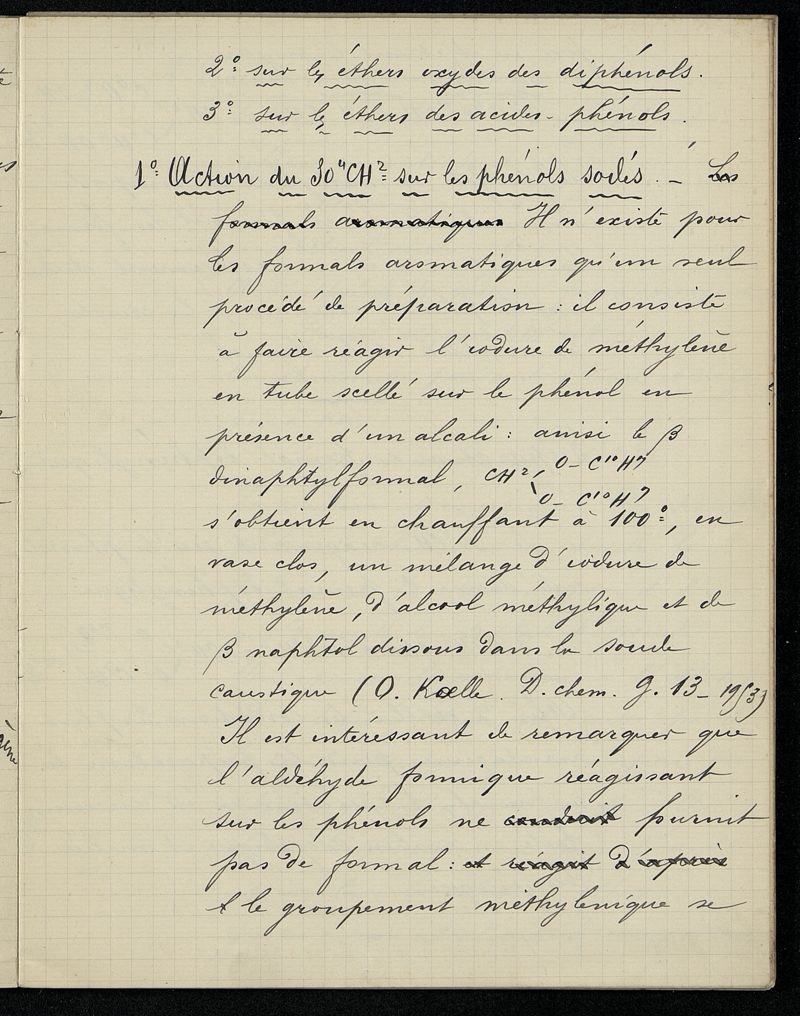 2° sur les éthers oxydes des diphénols.
3° sur les éthers des acides-phénols.
1° Action du SO⁴CH² sur les phénols sodés. — Les
formals aromatiques Il n'existe pour
les formals aromatiques qu'un seul
procédé de préparation : il consiste
à faire réagir l'iodure de méthylène
en tube scellé sur le phénol en
présence d'un alcali : ainsi le β
dinaphtylformal, CH² O - C¹⁰H⁷
O - C¹⁰H⁷
s'obtient en chauffant à 100°, en
vase clos, un mélange d'iodure de
méthylène, d'alcool méthylique et de
β naphtol dissous dans la soude
caustique (O. Kœlle. D. chem. G. 13 - 1953)
Il est intéressant de remarquer que
l'aldéhyde formique réagissant
sur les phénols ne conduit fournit
pas de formal : et réagit d'après
le groupement méthylénique se